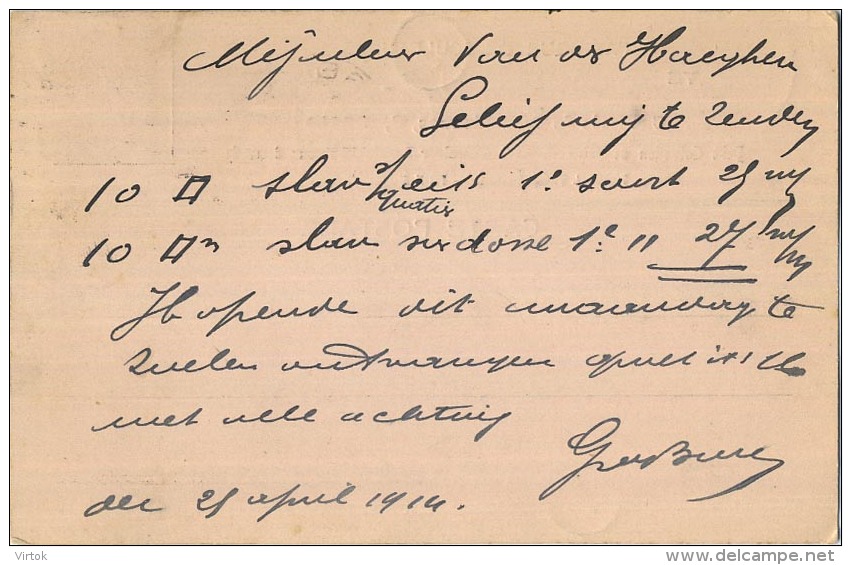 Mijnheer Van der Haeghen
Gelief mij te zenden
10 slav 1e soort 25 m/m
quatier
10 slav 1e " 27 m/m
Hopende dit maandag te
zullen ontvangen
met alle achting
den 25 april 1914.
Virtok
www.delcampe.net